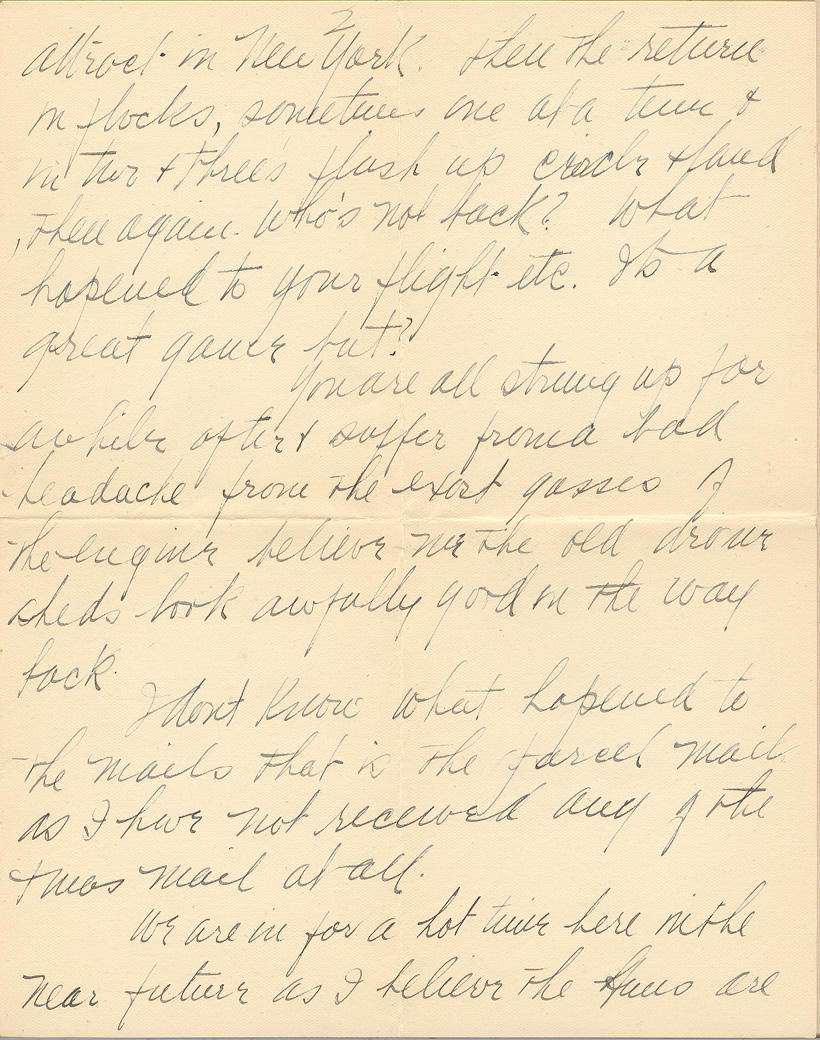 2
attract in New York. then the return
in flocks, sometimes one at a time &
in two & three's flash up circle & land
then again. Who's not back? What
hopened to your flight etc. Its a
great game but?
You are all strung up for
awhile after & suffer from a bad
headache from the exost gasses of
the engine believe me the old drome
sheds look awfully good on the way
back.
I dont know what hopened to
the mails that is the parcel mail
as I have not received any of the
Xmas mail at all.
We are in for a hot time here in the
near future as I believe the Huns are